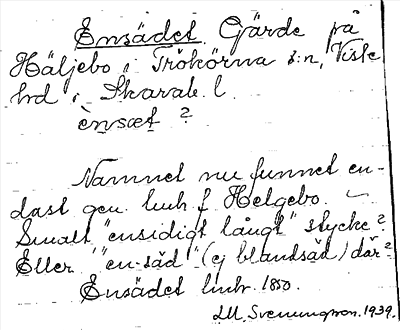 Ensädet. Gärde på
Häljebo i Trökörna s:n, Viste
hd i Skarab. l.
ènsæt ?
Namnet nu funnet en-
dast gm lmh f Helgebo.
Smalt "ensidigt långt" stycke?
Eller "en-säd" (ej blandsäd) där?
Ensädet lmhr. 1850.
Svenungsson. 1939.